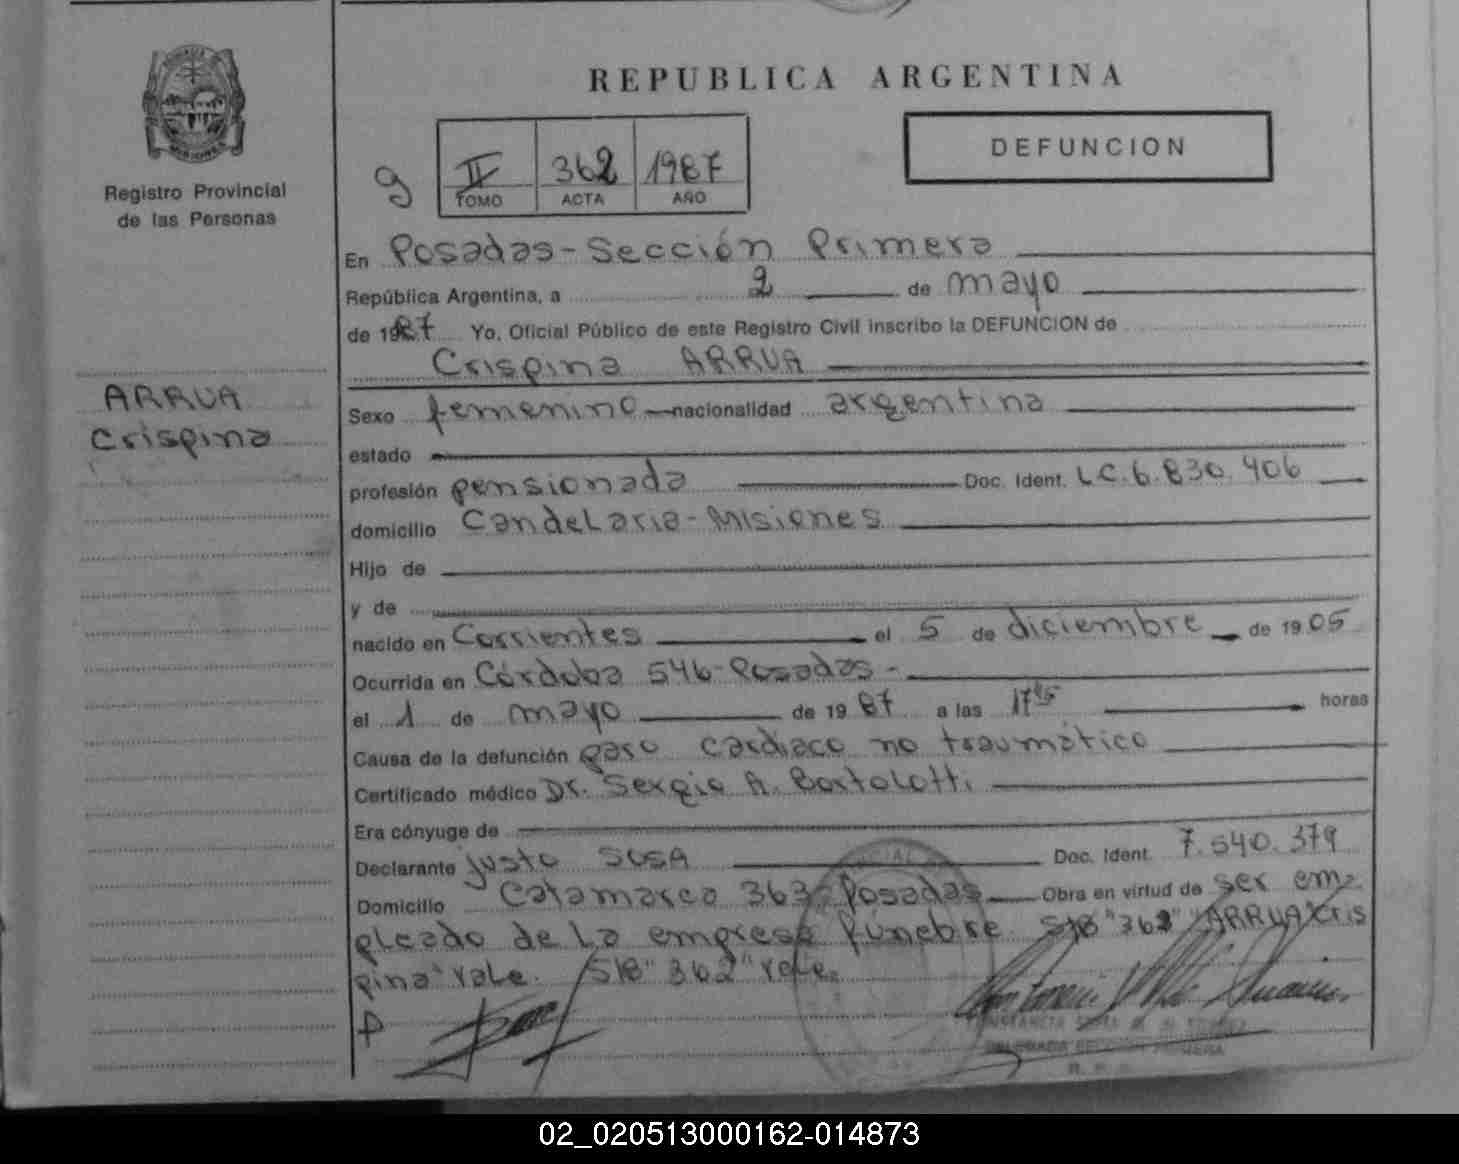 REPUBLICA ARGENTINA
DEFUNCION
Registro Provincial
de las Personas
g
II 362 1987
TOMO ACTA AÑO
ARRUA
Crispina
En Posadas-Sección Primera
República Argentina, a 2 de mayo
de 1987 Yo, Oficial Público de este Registro Civil inscribo la DEFUNCION de
Crispina ARRUA
Sexo femenino nacionalidad argentina
estado
profesión pensionada Doc. Ident. L.C. 6.830.406
domicilio Candelaria-Misiones
Hijo de
y de
nacido en Corrientes el 5 de diciembre de 1905
Ocurrida en Córdoba 546-Posadas-
el 1 de mayo de 1987 a las 17 horas
Causa de la defunción paro cardiaco no traumático
Certificado médico Dr. Sergio A. Bortolotti
Era cónyuge de
Declarante Justo SOSA Doc. Ident. 7.540.379
Domicilio Catamarca 363-Posadas Obra en virtud de ser em-
pleado de la empresa fúnebre. S/B "362" "ARRUA Cris
pina" vale. S/B "362" vale.
02_020513000162-014873